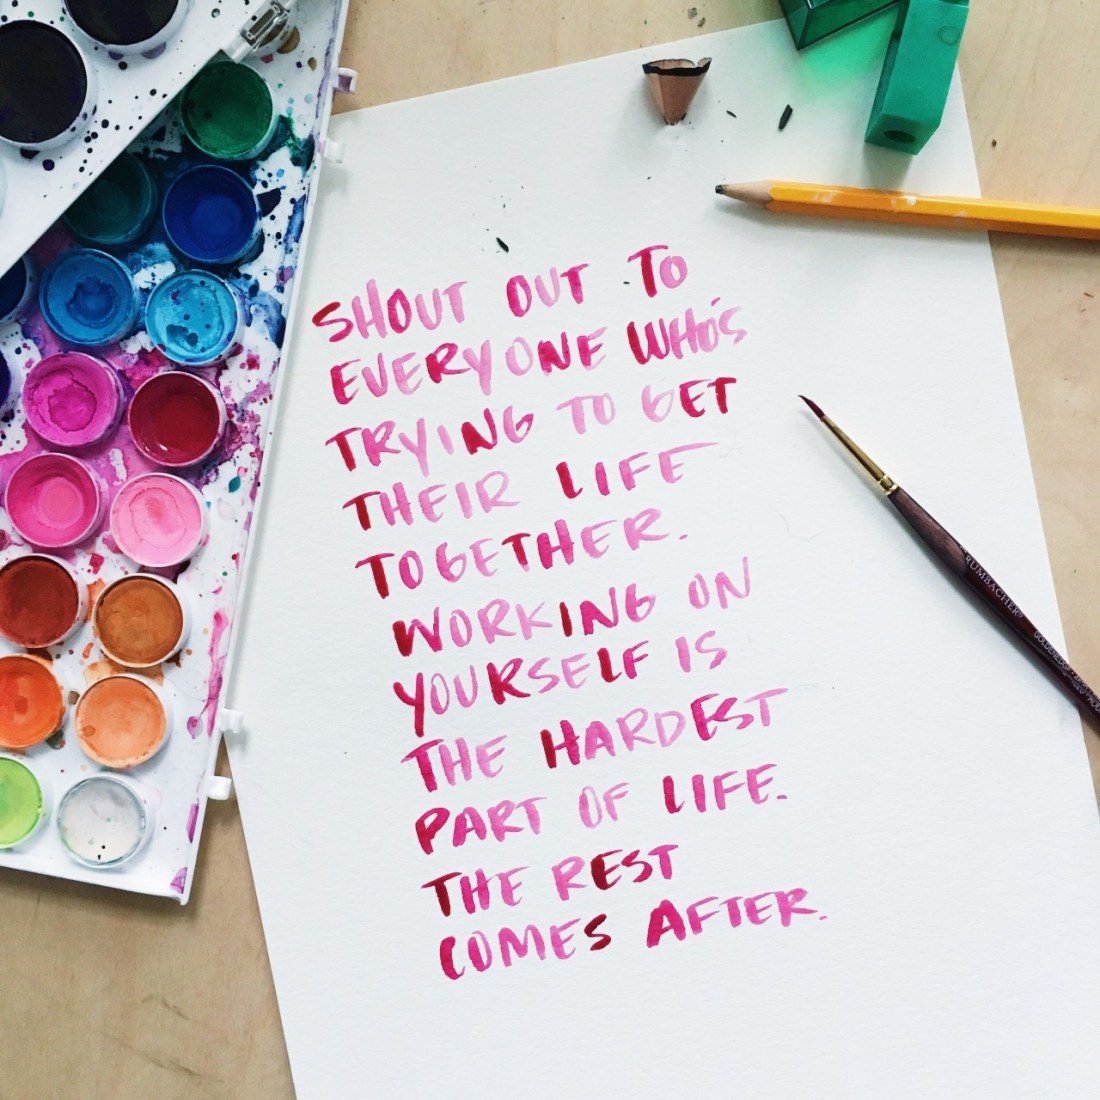 SHOUT OUT TO
EVERYONE WHO'S
TRYING TO GET
THEIR LIFE
TOGETHER.
WORKING ON
YOURSELF IS
THE HARDEST
PART OF LIFE.
THE REST
COMES AFTER.
KRUMBACHER